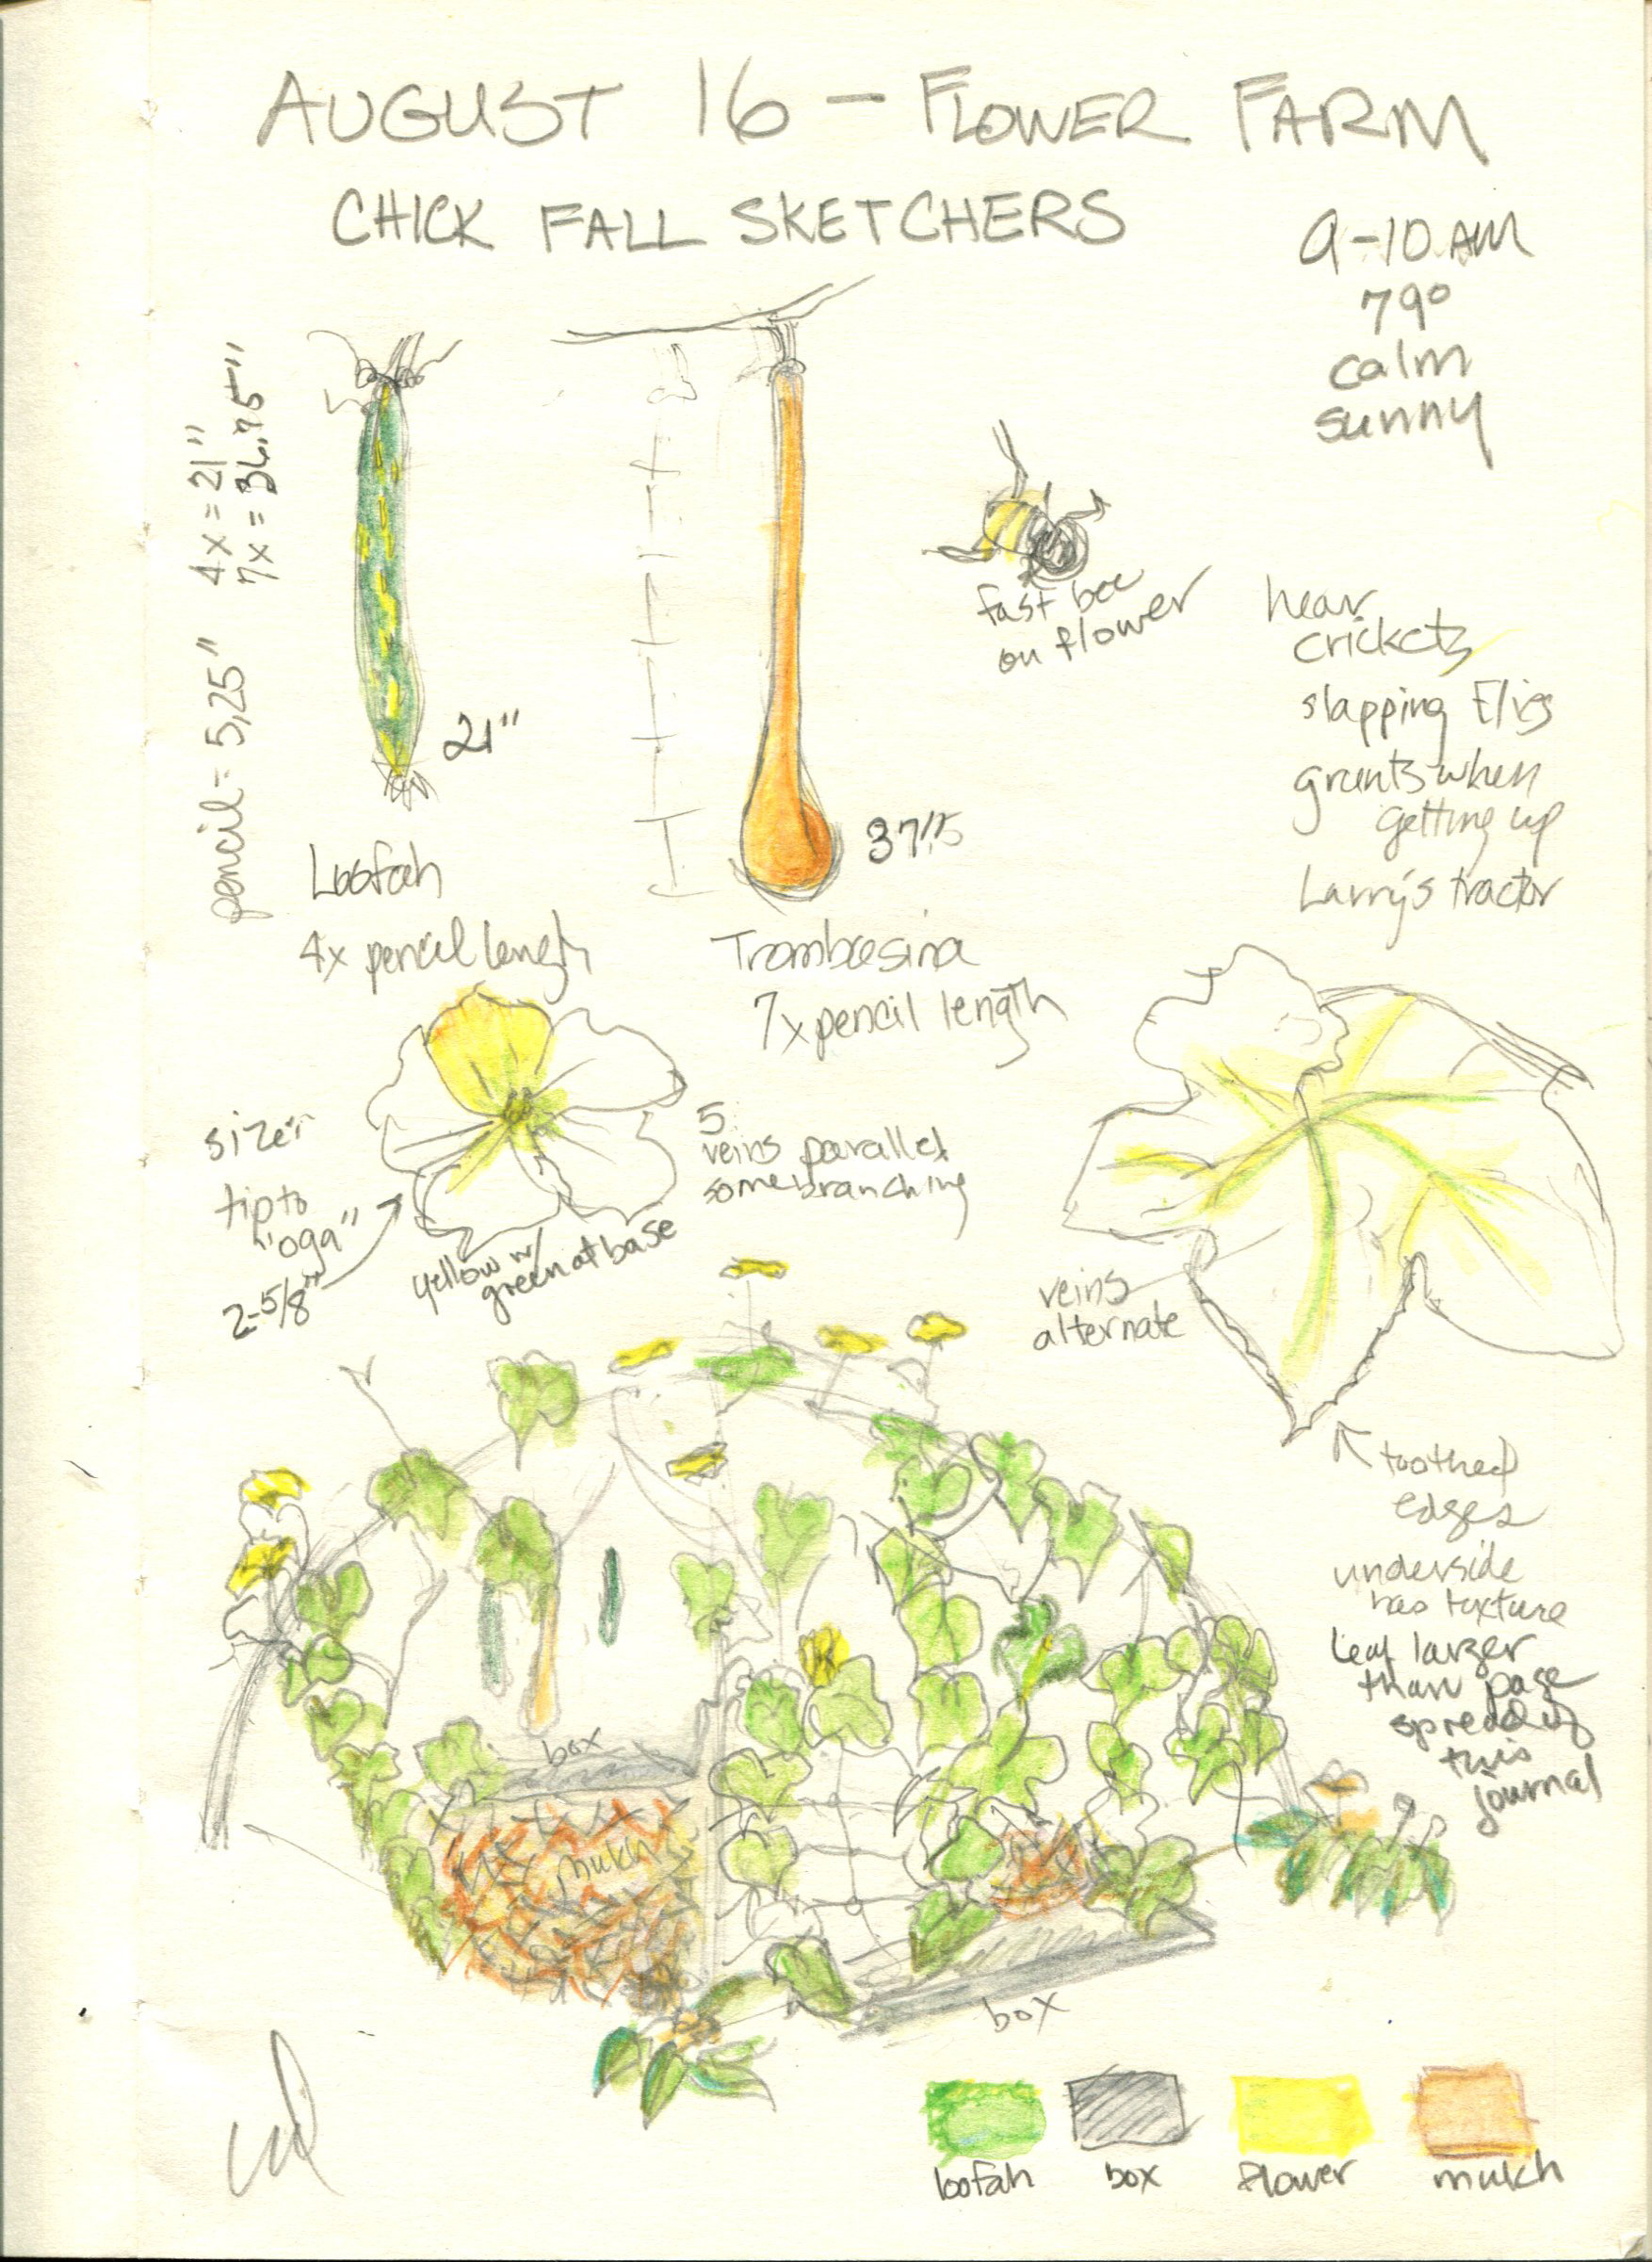 AUGUST 16 - FLOWER FARM
CHICK FALL SKETCHERS
9-10 AM
79°
calm
sunny
pencil = 5,25" 4x = 21"
7x = 36.75"
21"
Loofah
4x pencil length
37"
Trombosina
7x pencil length
fast bee
on flower
hear
crickets
slapping flies
grunts when
getting up
Larry's tractor
size:
tip to
2-5/8"
5
veins parallel
some branching
yellow w/
green at base
veins
alternate
toothed
edges
underside
has texture
leaf larger
than page
spread of
this
journal
box
mulch
box
loofah
box
flower
mulch